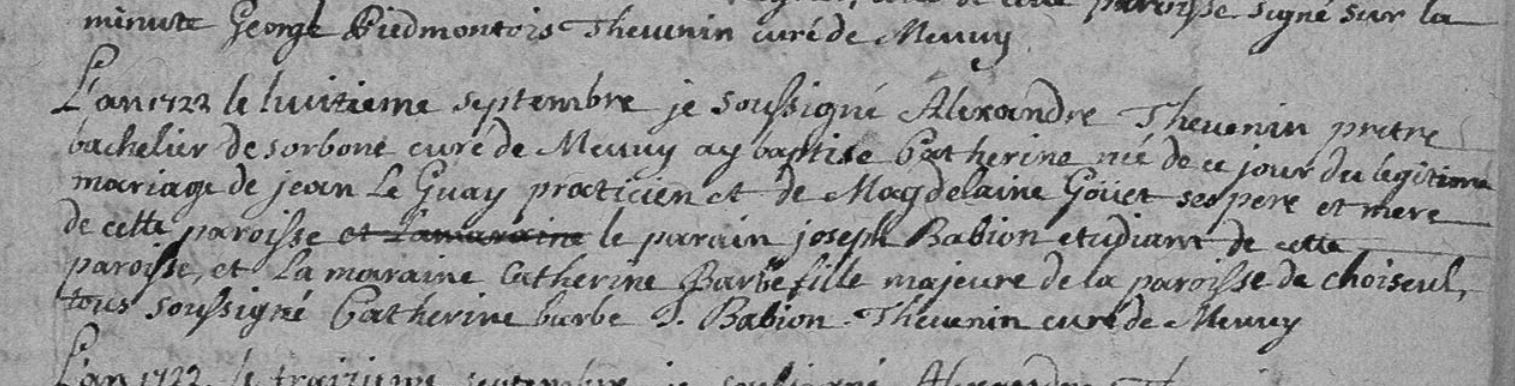 paroisse signé sur la
minute George Piedmontois Thevenin curé de Meuuy
L'an 1722 le huitieme septembre je soussigné Alexandre Thevenin pretre
bachelier de sorbone curé de Meuuy ay baptise Catherine née de ce jour du legitime
mariage de jean Le Guay praticien et de Magdelaine Goüet ses pere et mere
de cette paroisse et la maraine le parain joseph Babion etudiant de cette
paroisse, et La maraine Catherine Barbe fille majeure de la paroisse de choiseul,
tous soussigné Catherine barbe J. Babion. Thevenin curé de Meuuy
L'an 1722 le traizieme septembre je soussigné Alexandre